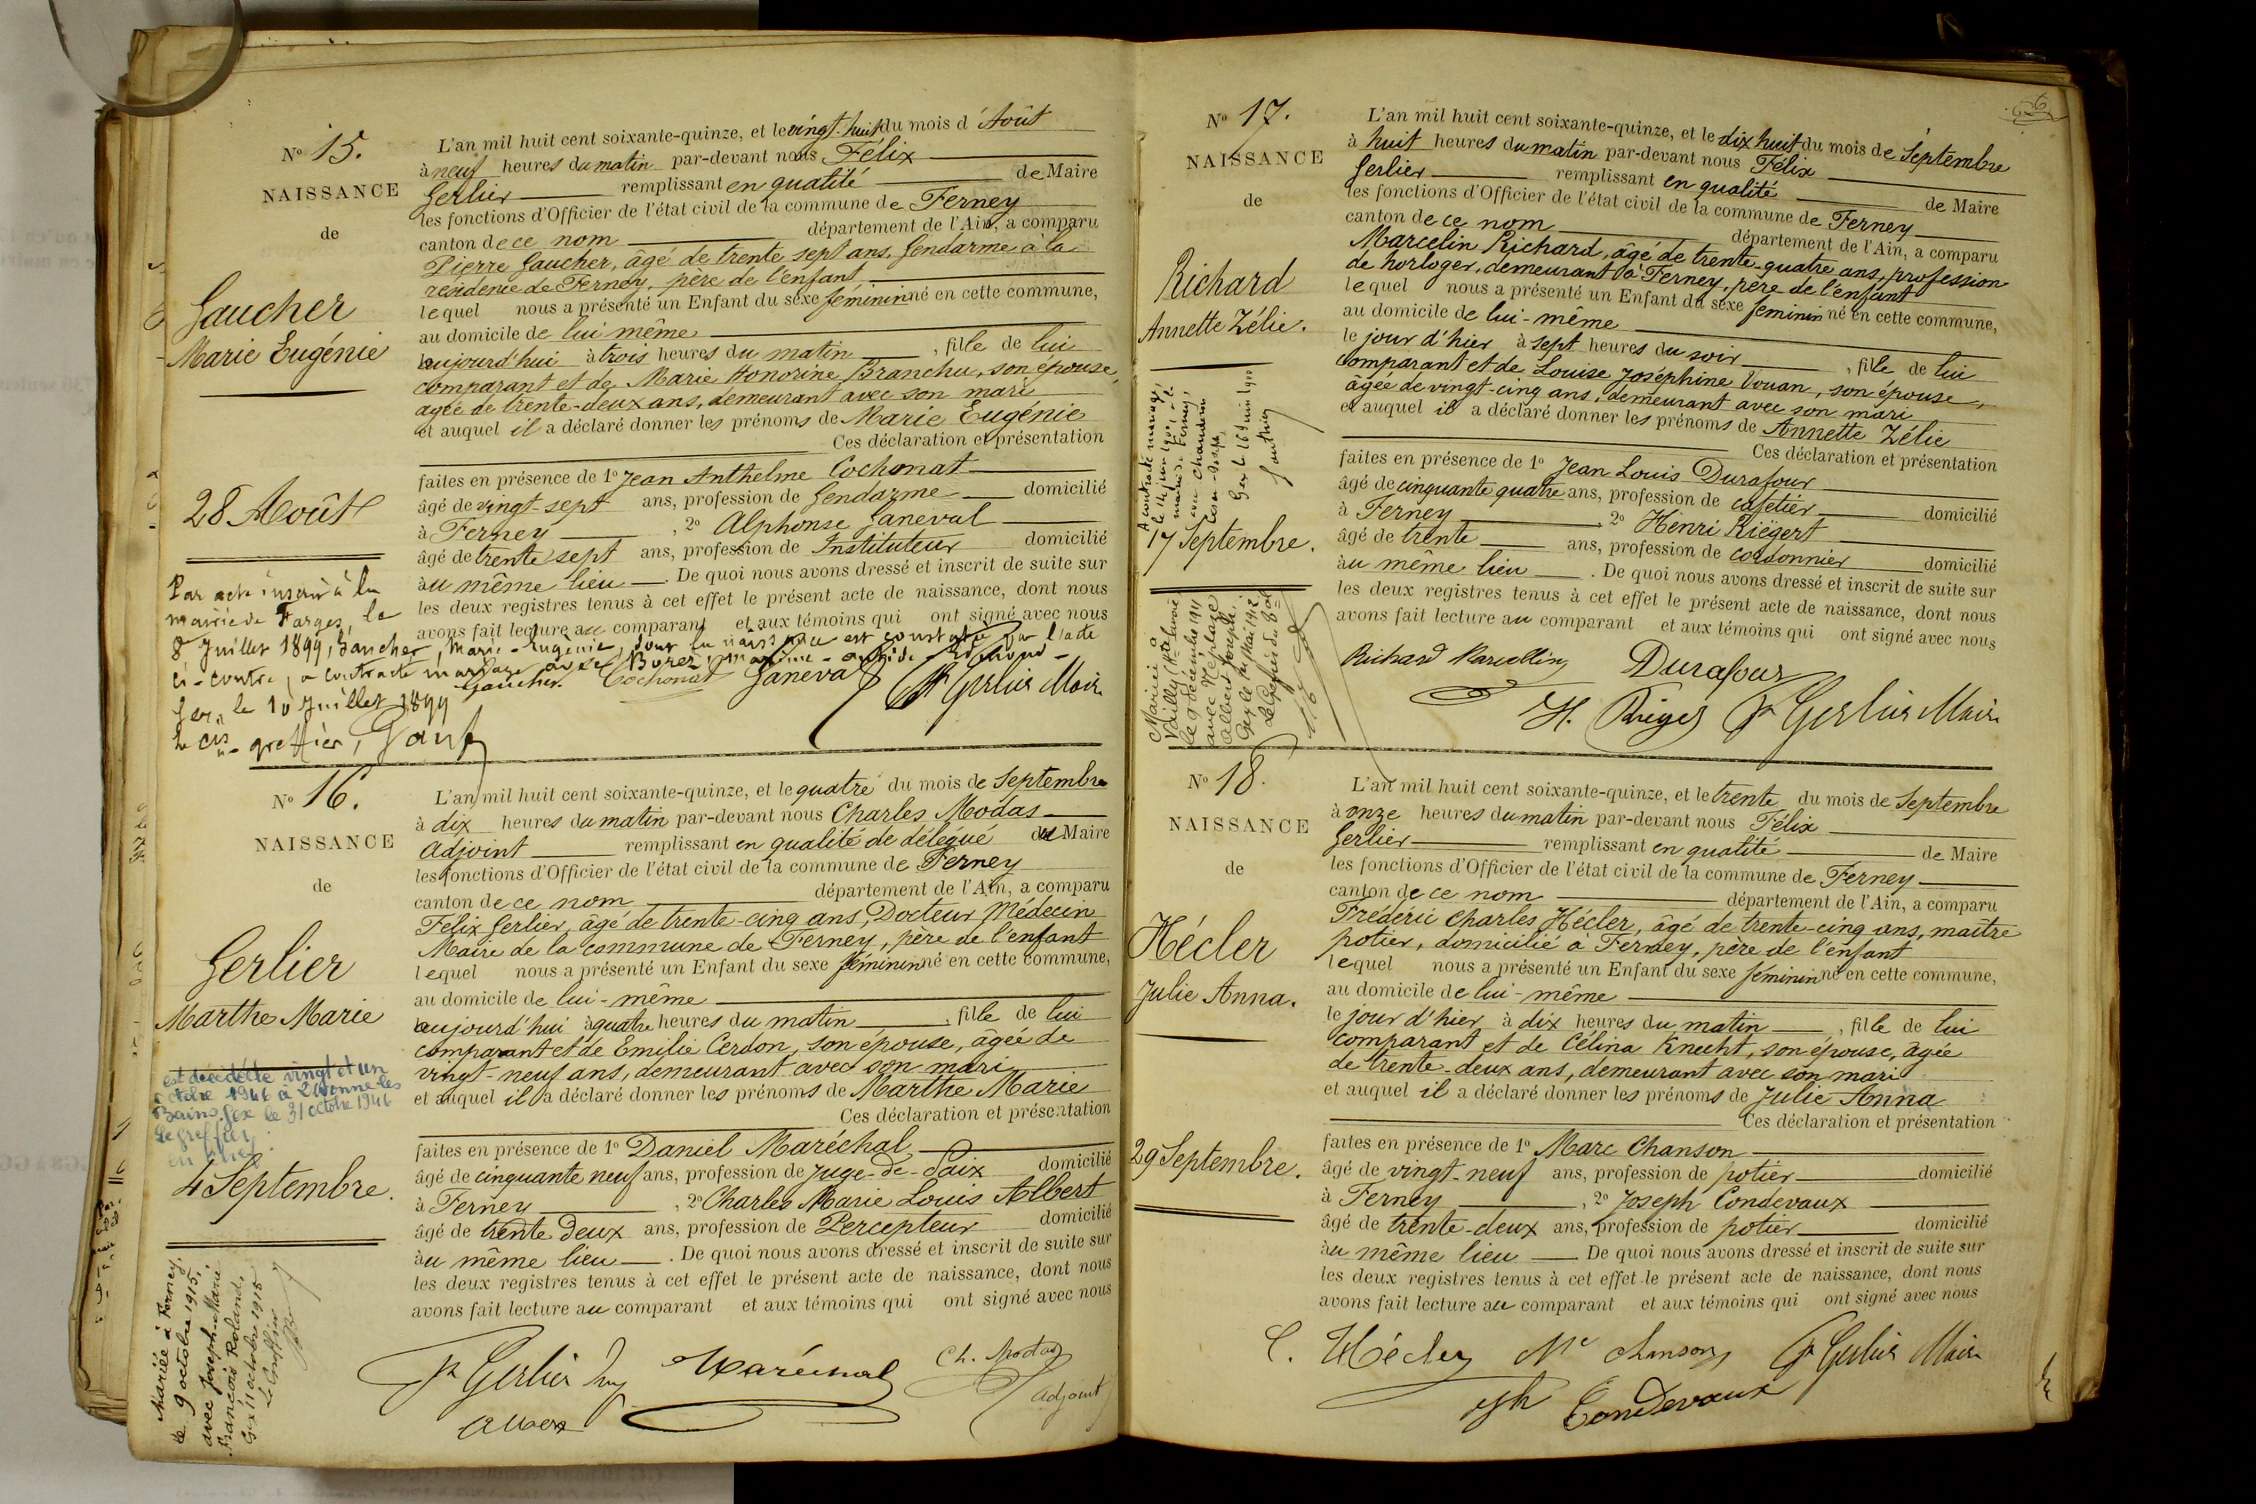 N° 15.
NAISSANCE
de
Gaucher
Marie Eugénie
28 Août
L'an mil huit cent soixante-quinze, et le vingt-huit du mois d'Août
à neuf heures du matin par-devant nous Félix
Gerlier remplissant en qualité de Maire
les fonctions d'Officier de l'état civil de la commune de Ferney
canton de ce nom département de l'Ain, a comparu
Pierre Gaucher, âgé de trente sept ans, Gendarme à la
résidence de Ferney, père de l'enfant
lequel nous a présenté un Enfant du sexe féminin né en cette commune,
au domicile de lui même
aujourd'hui à trois heures du matin, fille de lui
comparant et de Marie Honorine Branchu, son épouse,
agée de trente-deux ans, demeurant avec son mari
et auquel il a déclaré donner les prénoms de Marie Eugénie
Ces déclaration et présentation
faites en présence de 1° Jean Anthelme Cochonat
âgé de vingt-sept ans, profession de Gendarme domicilié
à Ferney, 2° Alphonse Ganeval
âgé de trente sept ans, profession de Instituteur domicilié
au même lieu. De quoi nous avons dressé et inscrit de suite sur
les deux registres tenus à cet effet le présent acte de naissance, dont nous
avons fait lecture au comparant et aux témoins qui ont signé avec nous
Par acte inscrit à la
mairie de Farges, le
8 Juillet 1899, Gaucher, Marie-Eugénie, dont la naissance est constatée par l'acte
ci-contre, a contracté mariage avec Borez,
Gex, le 10 Juillet 1899
le cis greffier,
Gaucher Cochonat Ganeval Fx Gerlier Maire
N° 16.
NAISSANCE
de
Gerlier
Marthe Marie
est décédée le vingt et un
octobre 1946 à Divonne-les
Bains. Gex le 31 octobre 1946
Le greffier
en chef
4 Septembre.
Mariée à Ferney,
le 9 octobre 1915,
avec Joseph-Marie
François Roland.
Gex 11 octobre 1915
Le Greffier
L'an mil huit cent soixante-quinze, et le quatre du mois de Septembre
à dix heures du matin par-devant nous Charles Modas
Adjoint remplissant en qualité de délégué du Maire
les fonctions d'Officier de l'état civil de la commune de Ferney
canton de ce nom département de l'Ain, a comparu
Félix Gerlier, âgé de trente-cinq ans, Docteur Médecin
Maire de la commune de Ferney, père de l'enfant
lequel nous a présenté un Enfant du sexe féminin né en cette commune,
au domicile de lui-même
aujourd'hui à quatre heures du matin, fille de lui
comparant et de Emilie Cerdon, son épouse, âgée de
vingt-neuf ans, demeurant avec son mari
et auquel il a déclaré donner les prénoms de Marthe Marie
Ces déclaration et présentation
faites en présence de 1° Daniel Maréchal,
âgé de cinquante neuf ans, profession de Juge-de-Paix domicilié
à Ferney, 2° Charles Marie Louis Albert
âgé de trente Deux ans, profession de Percepteur domicilié
au même lieu. De quoi nous avons dressé et inscrit de suite sur
les deux registres tenus à cet effet le présent acte de naissance, dont nous
avons fait lecture au comparant et aux témoins qui ont signé avec nous
Fx Gerlier Maréchal Ch. Modas
Albert adjoint
N° 17.
NAISSANCE
de
Richard
Annette Zélie.
A contracté mariage,
le 14 juin 1900, à la
mairie de Ferney,
avec
Gex le 16 juin 1900
17 Septembre.
Mariée à
le 9 décembre 1911
avec Neplaze
Albert Joseph.
Gex le Mai 1912
L'an mil huit cent soixante-quinze, et le dix huit du mois de Septembre
à huit heures du matin par-devant nous Félix
Gerlier remplissant en qualité de Maire
les fonctions d'Officier de l'état civil de la commune de Ferney
canton de ce nom département de l'Ain, a comparu
Marcelin Richard, âgé de trente-quatre ans, profession
de horloger, demeurant à Ferney, père de l'enfant
lequel nous a présenté un Enfant du sexe féminin né en cette commune,
au domicile de lui-même
le jour d'hier à sept heures du soir, fille de lui
comparant et de Louise Joséphine Vouan, son épouse,
âgée de vingt-cinq ans, demeurant avec son mari
et auquel il a déclaré donner les prénoms de Annette Zélie
Ces déclaration et présentation
faites en présence de 1° Jean Louis Durafour
âgé de cinquante quatre ans, profession de cafetier domicilié
à Ferney, 2° Henri Riëgert
âgé de trente ans, profession de cordonnier domicilié
au même lieu. De quoi nous avons dressé et inscrit de suite sur
les deux registres tenus à cet effet le présent acte de naissance, dont nous
avons fait lecture au comparant et aux témoins qui ont signé avec nous
Richard Marcellin Durafour
H. Rieger Fx Gerlier Maire
N° 18.
NAISSANCE
de
Hécler
Julie Anna.
29 Septembre.
L'an mil huit cent soixante-quinze, et le trente du mois de Septembre
à onze heures du matin par-devant nous Félix
Gerlier remplissant en qualité de Maire
les fonctions d'Officier de l'état civil de la commune de Ferney
canton de ce nom département de l'Ain, a comparu
Frédéric Charles Hécler, âgé de trente-cinq ans, maître
potier, domicilié à Ferney, père de l'enfant
lequel nous a présenté un Enfant du sexe féminin né en cette commune,
au domicile de lui-même
le jour d'hier à dix heures du matin, fille de lui
comparant et de Célina Knecht, son épouse, âgée
de trente-deux ans, demeurant avec son mari
et auquel il a déclaré donner les prénoms de Julie Anna
Ces déclaration et présentation
faites en présence de 1° Marc Chanson
âgé de vingt-neuf ans, profession de potier domicilié
à Ferney, 2° Joseph Condevaux
âgé de trente-deux ans, profession de potier domicilié
au même lieu. De quoi nous avons dressé et inscrit de suite sur
les deux registres tenus à cet effet le présent acte de naissance, dont nous
avons fait lecture au comparant et aux témoins qui ont signé avec nous
C. Hécler Mc Chanson Fx Gerlier Maire
Jph Condevaux